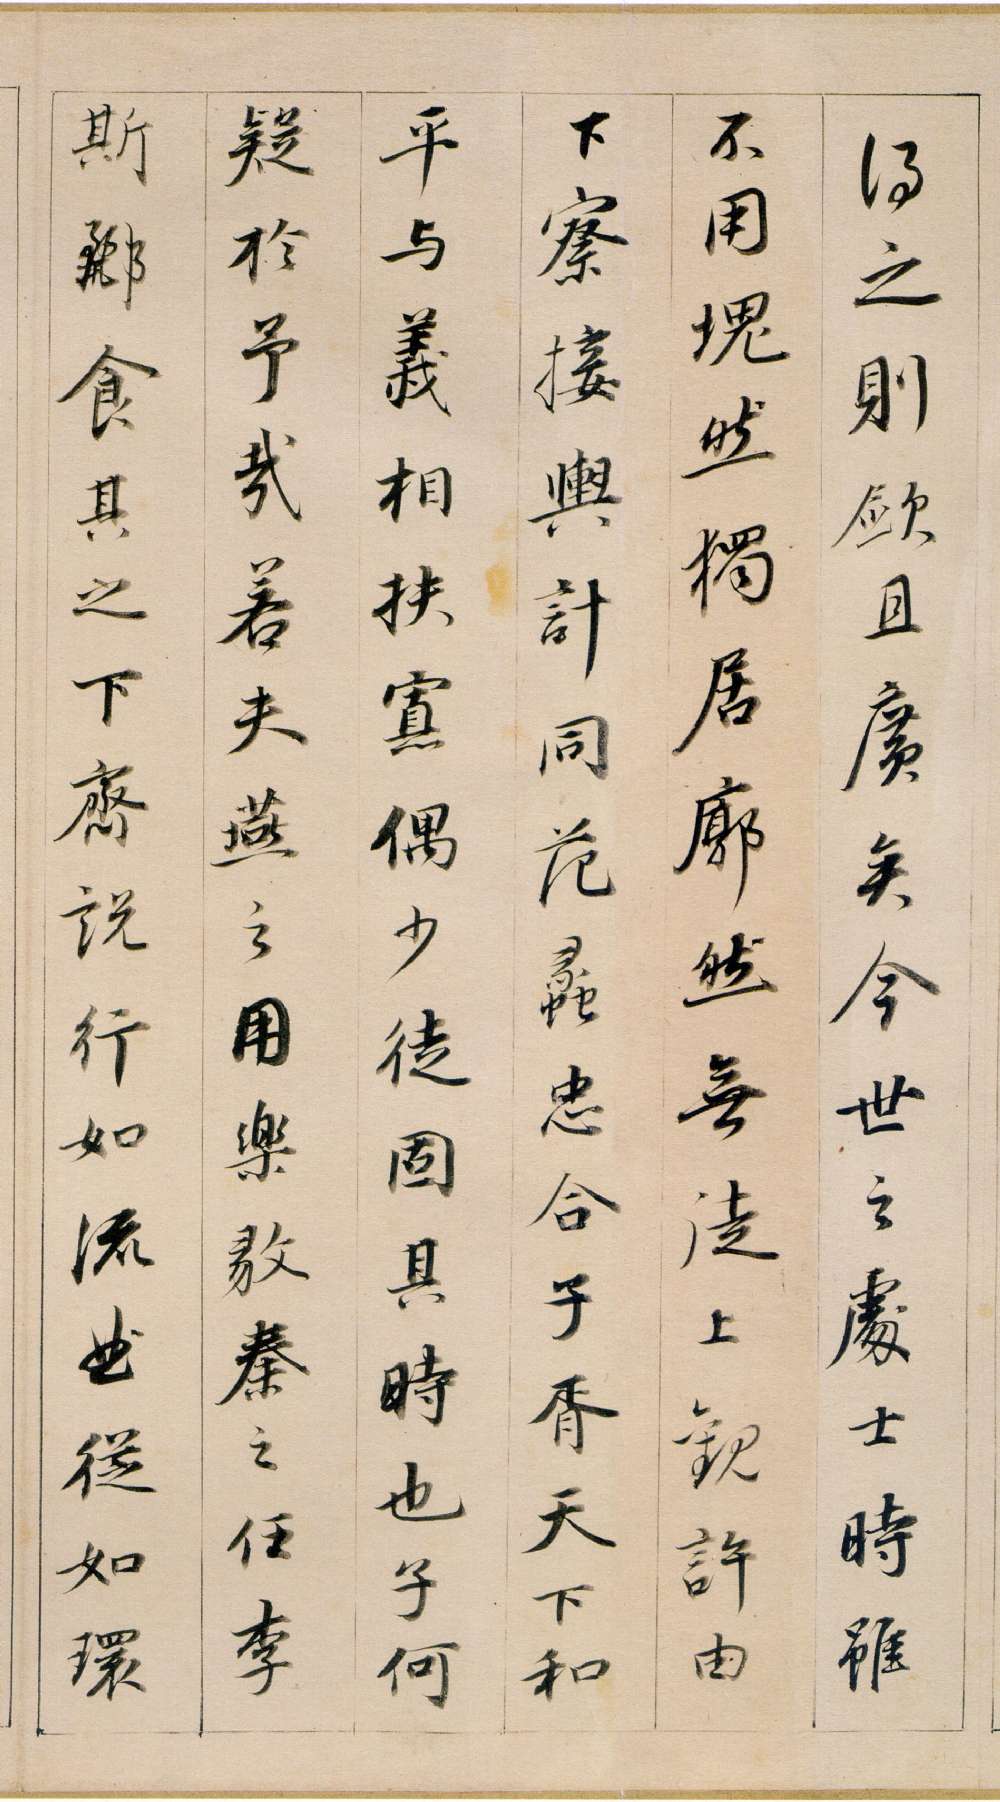 得之則敏且廣矣今世之處士時雖
不用塊然獨居廓然無徒上觀許由
下察接輿計同范蠡忠合子胥天下和
平与義相扶寡偶少徒固其時也子何
疑於予哉若夫燕之用樂毅秦之任李
斯酈食其之下齊說行如流曲從如環